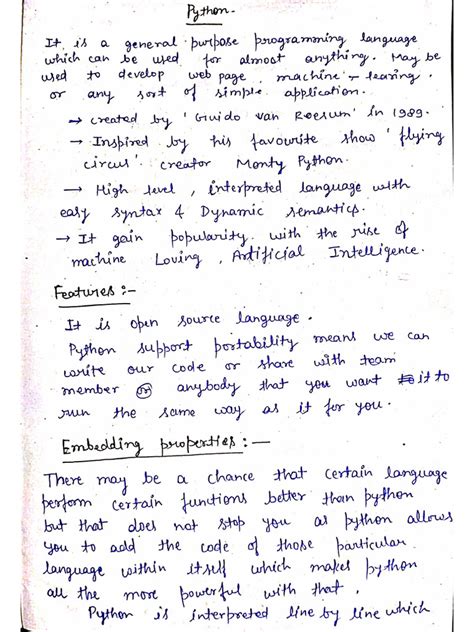 Python.
It is a general purpose programming language
which can be used for almost anything. May be
used to develop web page, machine - learing.
or any sort of simple application.
→ created by 'Guido van Roesum' in 1989.
→ Inspired by his favourite show 'flying
circus'. creator Monty Python.
→ High level, interpreted language with
easy syntax & Dynamic semantics.
→ It gain popularity with the rise of
machine Loving, Artificial Intelligence.
Features :-
It is open source language.
Python support portability means we can
write our code or share with team
member or anybody that you want it to
run the same way as it for you.
Embedding properties :-
There may be a chance that certain language
perform certain functions better than python
but that does not stop you as python allows
you to add the code of those particular
language within itself which makes python
all the more powerful with that.
Python is interpreted line by line which